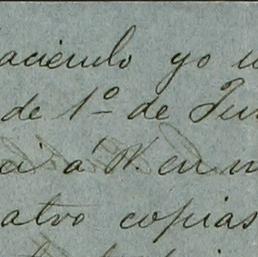 haciendo yo u
de 1º de Jun
ci á V. en m
atro copias